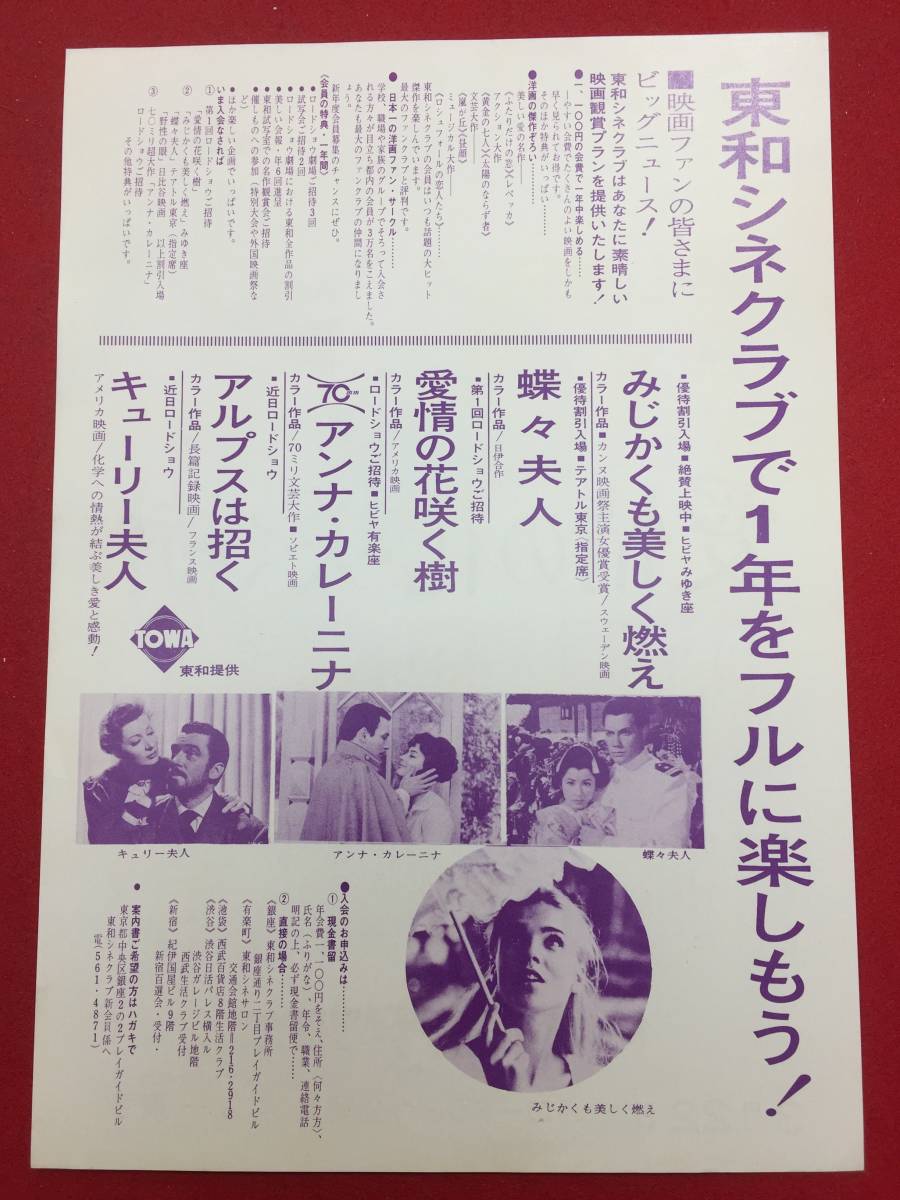 東和シネクラブで1年をフルに楽しもう!
■映画ファンの皆さまに
ビッグニュース!
東和シネクラブはあなたに素晴しい
映画観賞プランを提供いたします!
●一、一〇〇円の会費で一年中楽しめる……
―やすい会費でたくさんのよい映画をしかも
早く見られてお得です。
そのほか特典がいっぱい――
●洋画の傑作ぞろい……
美しい愛の名作――
《ふたりだけの恋》《レベッカ》
アクション大作
《黄金の七人》《太陽のならず者》
文芸大作――
《嵐が丘》《昼顔》
ミュージカル大作――
《ロシュフォールの恋人たち》
東和シネクラブの会員はいつも話題の大ヒット
傑作を楽しんでいます。
最大のファン・クラブと評判です。
●日本一の洋画ファン・サークル……
学校、職場や家族のグループでそろって入会さ
れる方々が目立ち都内の会員が3万名をこえました。
あなたも最大のファンクラブの仲間になりまし
ょう。
新年度会員募集のチャンスにぜひ。
《会員の特典・一年間》
●ロードショウ劇場ご招待3回
●試写会ご招待2回
●ロードショウ劇場における東和全作品の割引
●美しい会報・年6回進呈
●東和試写室での名作観賞会ご招待
●催しものへの参加(特別大会や外国映画祭な
ど)
●ほか楽しい企画でいっぱいです。
いま入会なされば
① 第1回ロードショウご招待
「愛情の花咲く樹」
② 「みじかくも美しく燃え」みゆき座
「蝶々夫人」テアトル東京(指定席)
「野性の眼」日比谷映画 以上割引入場
③ 七〇ミリ超大作「アンナ・カレーニナ」
ロードショウご招待
その他特典がいっぱいです。
■優待割引入場■絶賛上映中■ヒビヤみゆき座
みじかくも美しく燃え
カラー作品■カンヌ映画祭主演女優賞受賞!/スウェーデン映画
■優待割引入場■テアトル東京〈指定席〉
蝶々夫人
カラー作品/日伊合作
■第1回ロードショウご招待
愛情の花咲く樹
カラー作品/アメリカ映画
■ロードショウご招待■ヒビヤ有楽座
70mm アンナ・カレーニナ
カラー作品/70ミリ文芸大作■ソビエト映画
■近日ロードショウ
アルプスは招く
カラー作品/長篇記録映画/フランス映画
■近日ロードショウ
キューリー夫人
アメリカ映画/化学への情熱が結ぶ美しき愛と感動!
TOWA
東和提供
キュリー夫人
アンナ・カレーニナ
蝶々夫人
みじかくも美しく燃え
●入会のお申込みは………
① 現金書留
年会費一、一〇〇円をそえ、住所(何々方方)、
氏名(ふりがな)、年令、職業、連絡電話
明記の上、必ず現金書留便で……
② 直接の場合……
《銀座》東和シネクラブ事務所
銀座通り二丁目プレイガイドビル
《有楽町》東和シネサロン
交通会館地階=216・2918
《池袋》西武百貨店8階生活クラブ
《渋谷》渋谷日活パレス横入ル
渋谷ガレージビル地階
西武生活クラブ受付
《新宿》紀伊国屋ビル9階
新宿百選会・受付・
●案内書ご希望の方はハガキで
東京都中央区銀座2の2プレイガイドビル
東和シネクラブ新会員係へ
電(561・4871)